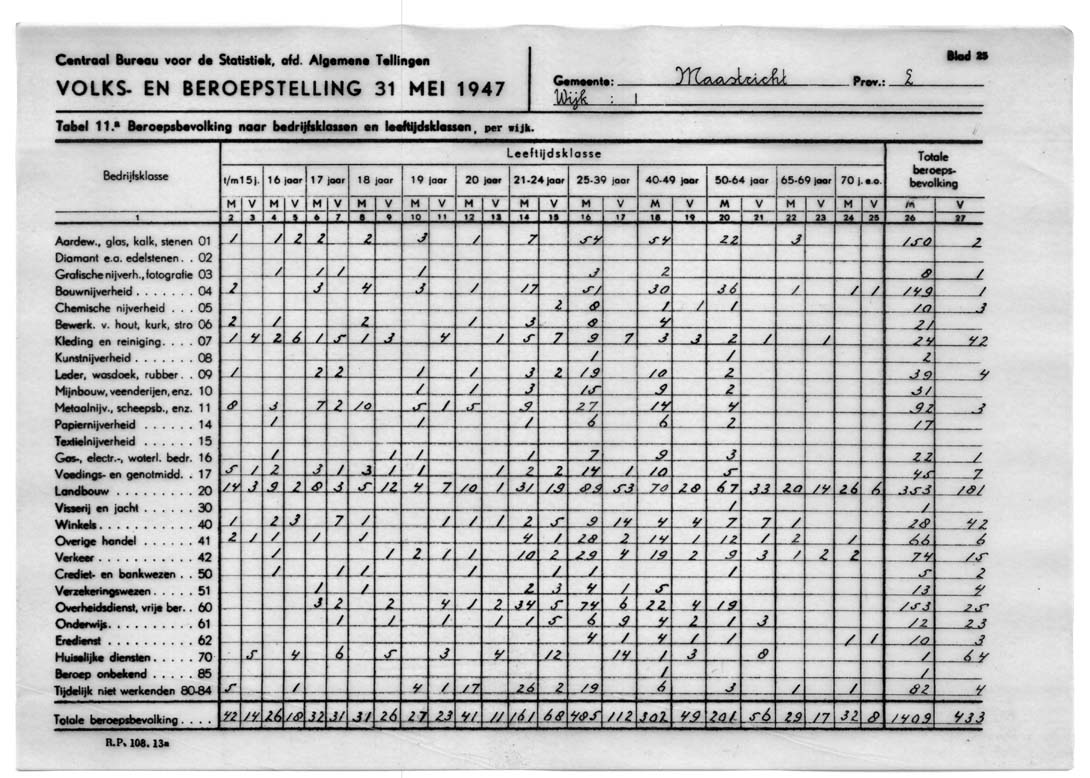 Centraal Bureau voor de Statistiek, afd. Algemene Tellingen
VOLKS- EN BEROEPSTELLING 31 MEI 1947
Blad 25
Gemeente: Maastricht Prov.: L
Wijk : 1
Tabel 11.ª Beroepsbevolking naar bedrijfsklassen en leeftijdsklassen, per wijk.
Bedrijfsklasse Leeftijdsklasse Totale beroeps-bevolking
t/m15 j. 16 jaar 17 jaar 18 jaar 19 jaar 20 jaar 21-24 jaar 25-39 jaar 40-49 jaar 50-64 jaar 65-69 jaar 70 j. e.o.
M V M V M V M V M V M V M V M V M V M V M V M V M V
1 2 3 4 5 6 7 8 9 10 11 12 13 14 15 16 17 18 19 20 21 22 23 24 25 26 27
Aardew., glas, kalk, stenen 01 1 1 2 2 2 3 1 7 54 54 22 3 150 2
Diamant e.a. edelstenen . . 02
Grafische nijverh., fotografie 03 1 1 1 1 3 2 8 1
Bouwnijverheid . . . . . . . 04 2 3 4 3 1 17 51 30 36 1 1 1 149 1
Chemische nijverheid . . . 05 2 8 1 1 1 10 3
Bewerk. v. hout, kurk, stro 06 2 1 2 1 3 8 4 21
Kleding en reiniging. . . . 07 1 4 2 6 1 5 1 3 4 1 5 7 9 7 3 3 2 1 1 24 42
Kunstnijverheid . . . . . . 08 1 1 2
Leder, wasdoek, rubber . . 09 1 2 2 1 1 3 2 19 10 2 39 4
Mijnbouw, veenderijen, enz. 10 1 1 3 15 9 2 31
Metaalnijv., scheepsb., enz. 11 8 3 7 2 10 5 1 5 9 27 14 4 92 3
Papiernijverheid . . . . . . 14 1 1 1 6 6 2 17
Textielnijverheid . . . . . 15
Gas-, electr.-, waterl. bedr. 16 1 1 1 1 7 9 3 22 1
Voedings- en genotmidd. . 17 5 1 2 3 1 3 1 1 1 2 2 14 1 10 5 45 7
Landbouw . . . . . . . . . 20 14 3 9 2 8 3 5 12 4 7 10 1 31 19 89 53 70 28 67 33 20 14 26 6 353 181
Visserij en jacht . . . . . 30 1 1
Winkels . . . . . . . . . . 40 1 2 3 7 1 1 1 1 2 5 9 14 4 4 7 7 1 28 42
Overige handel . . . . . . 41 2 1 1 1 1 4 1 28 2 14 1 12 1 2 1 66 6
Verkeer . . . . . . . . . . 42 1 1 2 1 1 10 2 29 4 19 2 9 3 1 2 2 74 15
Crediet- en bankwezen . . 50 1 1 1 1 1 1 1 5 2
Verzekeringswezen . . . . 51 1 1 2 3 4 1 5 13 4
Overheidsdienst, vrije ber. . 60 3 2 2 4 1 2 34 5 74 6 22 4 19 153 25
Onderwijs. . . . . . . . . 61 1 1 1 1 1 5 6 9 4 2 1 3 12 23
Eredienst . . . . . . . . . 62 4 1 4 1 1 1 1 10 3
Huiselijke diensten . . . . . 70 5 4 6 5 3 4 12 14 1 3 8 1 64
Beroep onbekend . . . . . 85 1 1
Tijdelijk niet werkenden 80-84 5 1 4 1 17 26 2 19 6 3 1 1 82 4
Totale beroepsbevolking . . . . 42 14 26 18 32 31 31 26 27 23 41 11 161 68 485 112 302 49 201 56 29 17 32 8 1409 433
R.P. 108. 13a